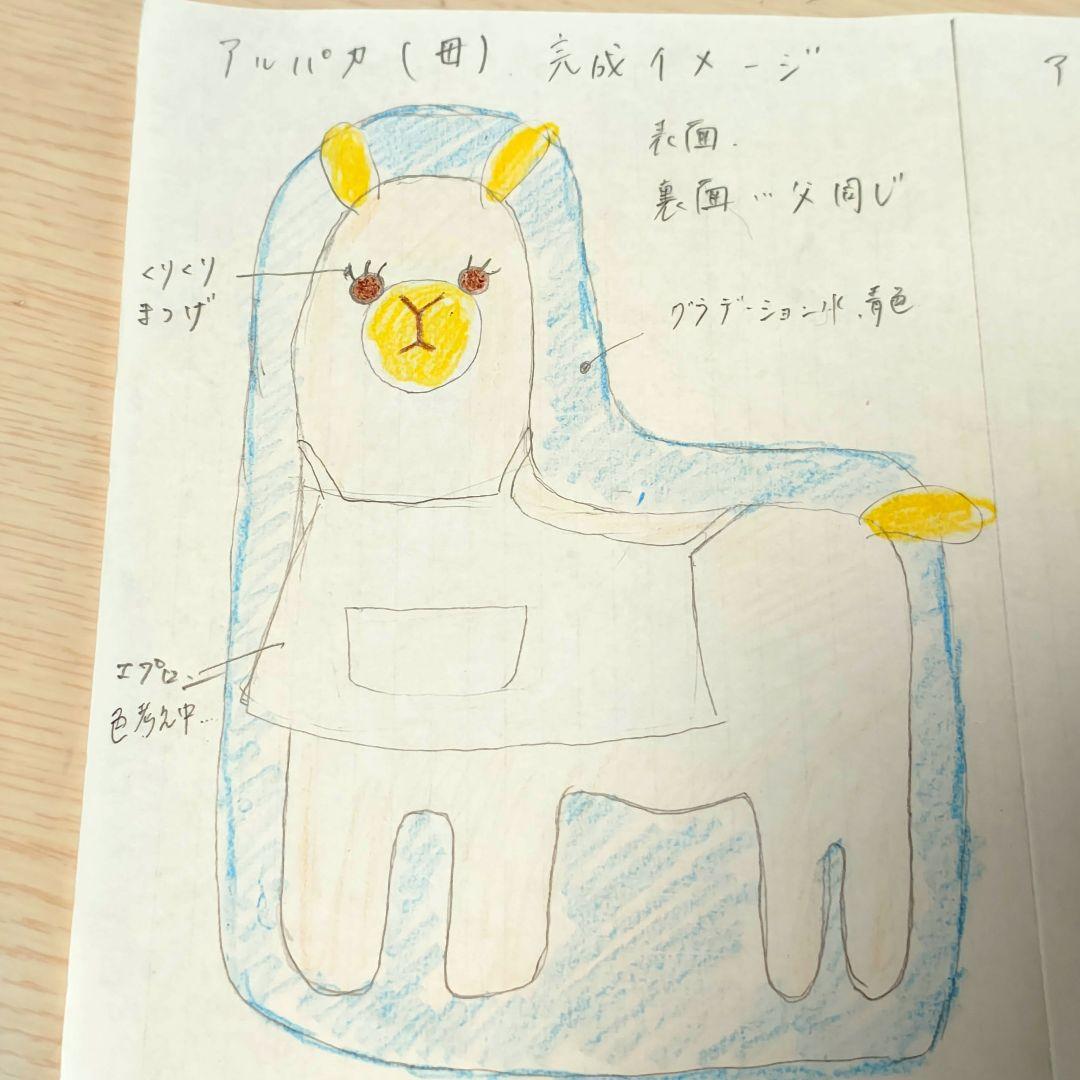 アルパカ(母) 完成イメージ
表面.
裏面…父同じ
くりくり
まつげ
グラデーション水.青色
エプロン
色考え中…
ア